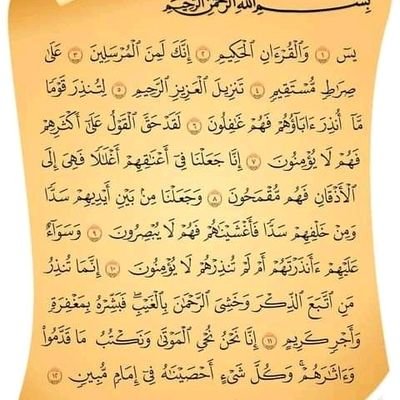 بِسْمِ ٱللَّهِ ٱلرَّحْمَٰنِ ٱلرَّحِيمِ
يسٓ ١ وَٱلْقُرْءَانِ ٱلْحَكِيمِ ٢ إِنَّكَ لَمِنَ ٱلْمُرْسَلِينَ ٣ عَلَىٰ
صِرَٰطٍ مُّسْتَقِيمٍ ٤ تَنزِيلَ ٱلْعَزِيزِ ٱلرَّحِيمِ ٥ لِتُنذِرَ قَوْمًا
مَّآ أُنذِرَ ءَابَآؤُهُمْ فَهُمْ غَٰفِلُونَ ٦ لَقَدْ حَقَّ ٱلْقَوْلُ عَلَىٰٓ أَكْثَرِهِمْ
فَهُمْ لَا يُؤْمِنُونَ ٧ إِنَّا جَعَلْنَا فِىٓ أَعْنَٰقِهِمْ أَغْلَٰلًا فَهِىَ إِلَى
ٱلْأَذْقَانِ فَهُم مُّقْمَحُونَ ٨ وَجَعَلْنَا مِنۢ بَيْنِ أَيْدِيهِمْ سَدًّا
وَمِنْ خَلْفِهِمْ سَدًّا فَأَغْشَيْنَٰهُمْ فَهُمْ لَا يُبْصِرُونَ ٩ وَسَوَآءٌ
عَلَيْهِمْ ءَأَنذَرْتَهُمْ أَمْ لَمْ تُنذِرْهُمْ لَا يُؤْمِنُونَ ١٠ إِنَّمَا تُنذِرُ
مَنِ ٱتَّبَعَ ٱلذِّكْرَ وَخَشِىَ ٱلرَّحْمَٰنَ بِٱلْغَيْبِ ۖ فَبَشِّرْهُ بِمَغْفِرَةٍ
وَأَجْرٍ كَرِيمٍ ١١ إِنَّا نَحْنُ نُحْىِ ٱلْمَوْتَىٰ وَنَكْتُبُ مَا قَدَّمُوا۟
وَءَاثَٰرَهُمْ ۚ وَكُلَّ شَىْءٍ أَحْصَيْنَٰهُ فِىٓ إِمَامٍ مُّبِينٍ ١٢